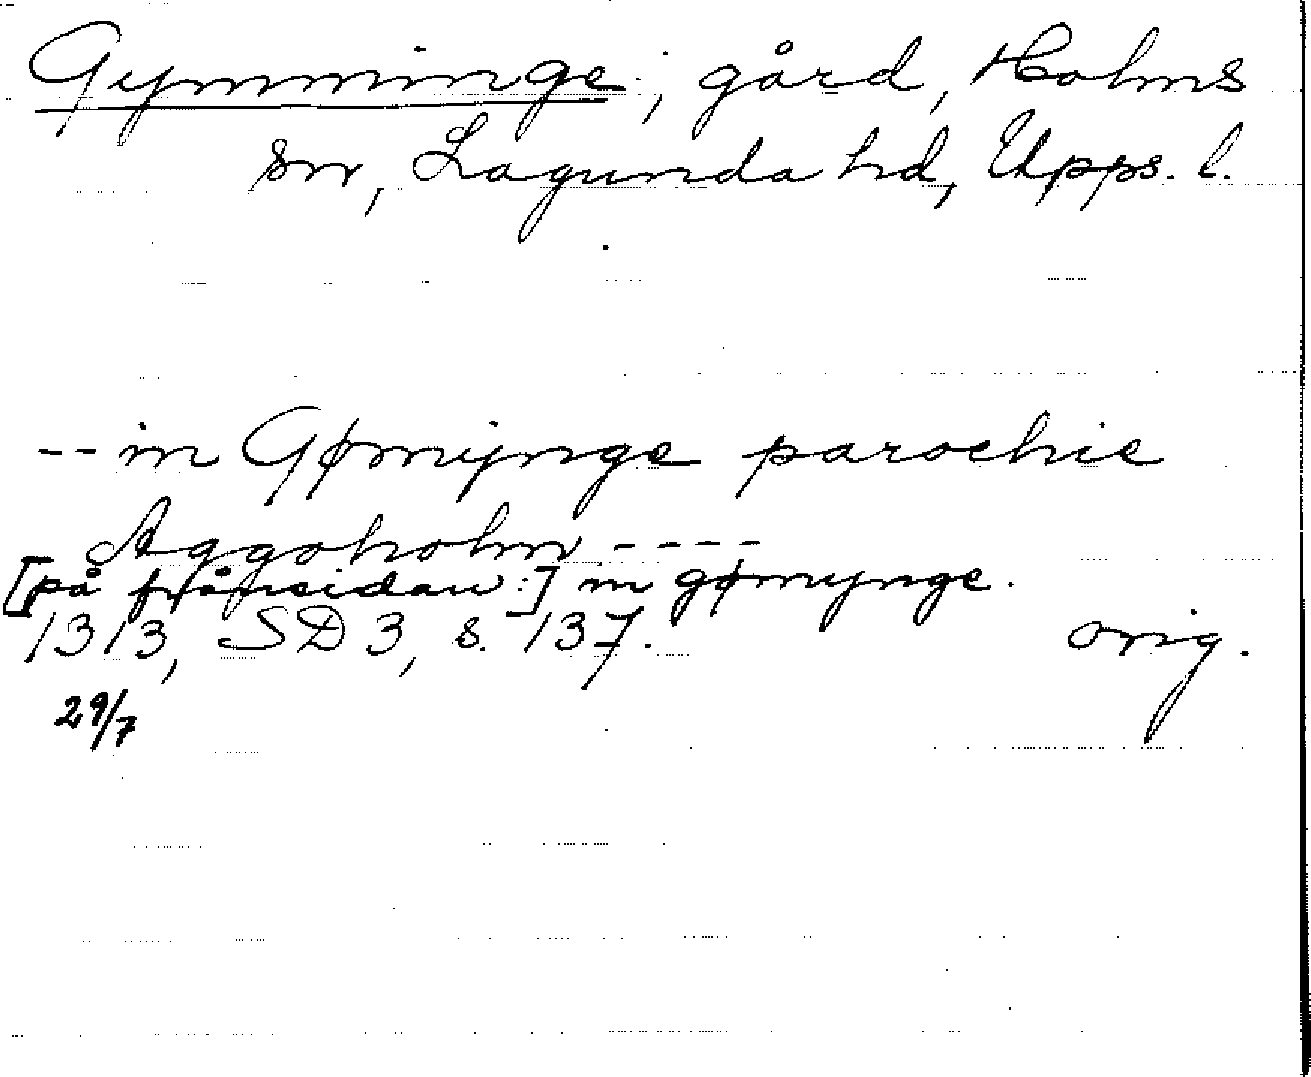 Gymminge, gård, Holms
sn, Lagunda hd, Upps. l.
-- in Gømynge parochie
Aggaholm ----
[på frånsidan:] in gømynge.
1313, SD 3, s. 137. orig.
29/7